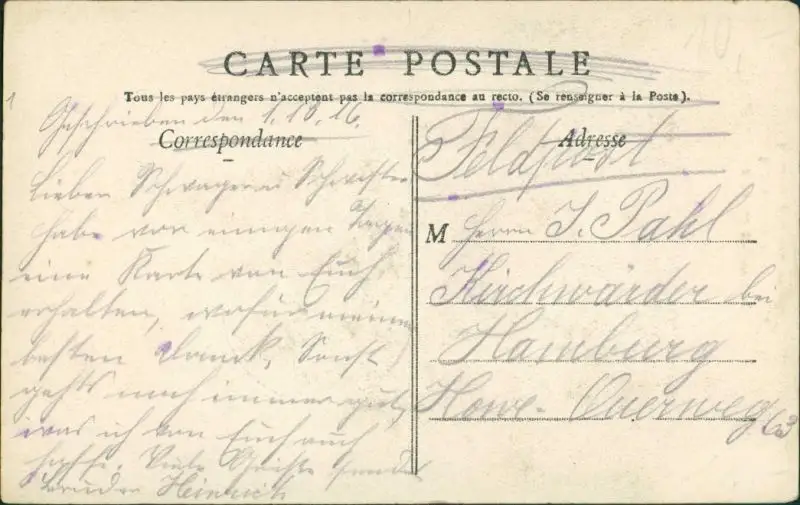 CARTE POSTALE
Tous les pays étrangers n'acceptent pas la correspondance au recto. (Se renseigner à la Poste).
Correspondance
Geschrieben den 1.10.16.
Lieben Schwager u Schwester
habe vor einigen Tagen
eine Karte von Euch
erhalten, wofür meinen
besten Danck, Sonst
gehts noch immer gut,
was ich von Euch auch
hoffe. Viele Grüße sendet
Bruder Heinrich
Adresse
Feldpost
M Herrn J. Pahl
Kirchwärder bei
Hamburg
Howe- Querweg 63